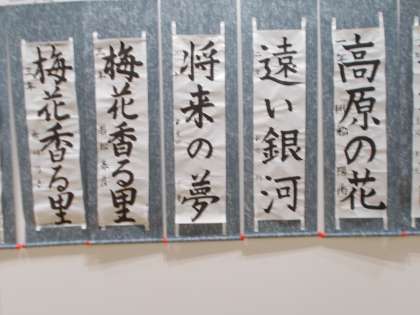 高原の花
遠い銀河
将来の夢
梅花香る里
梅花香る里